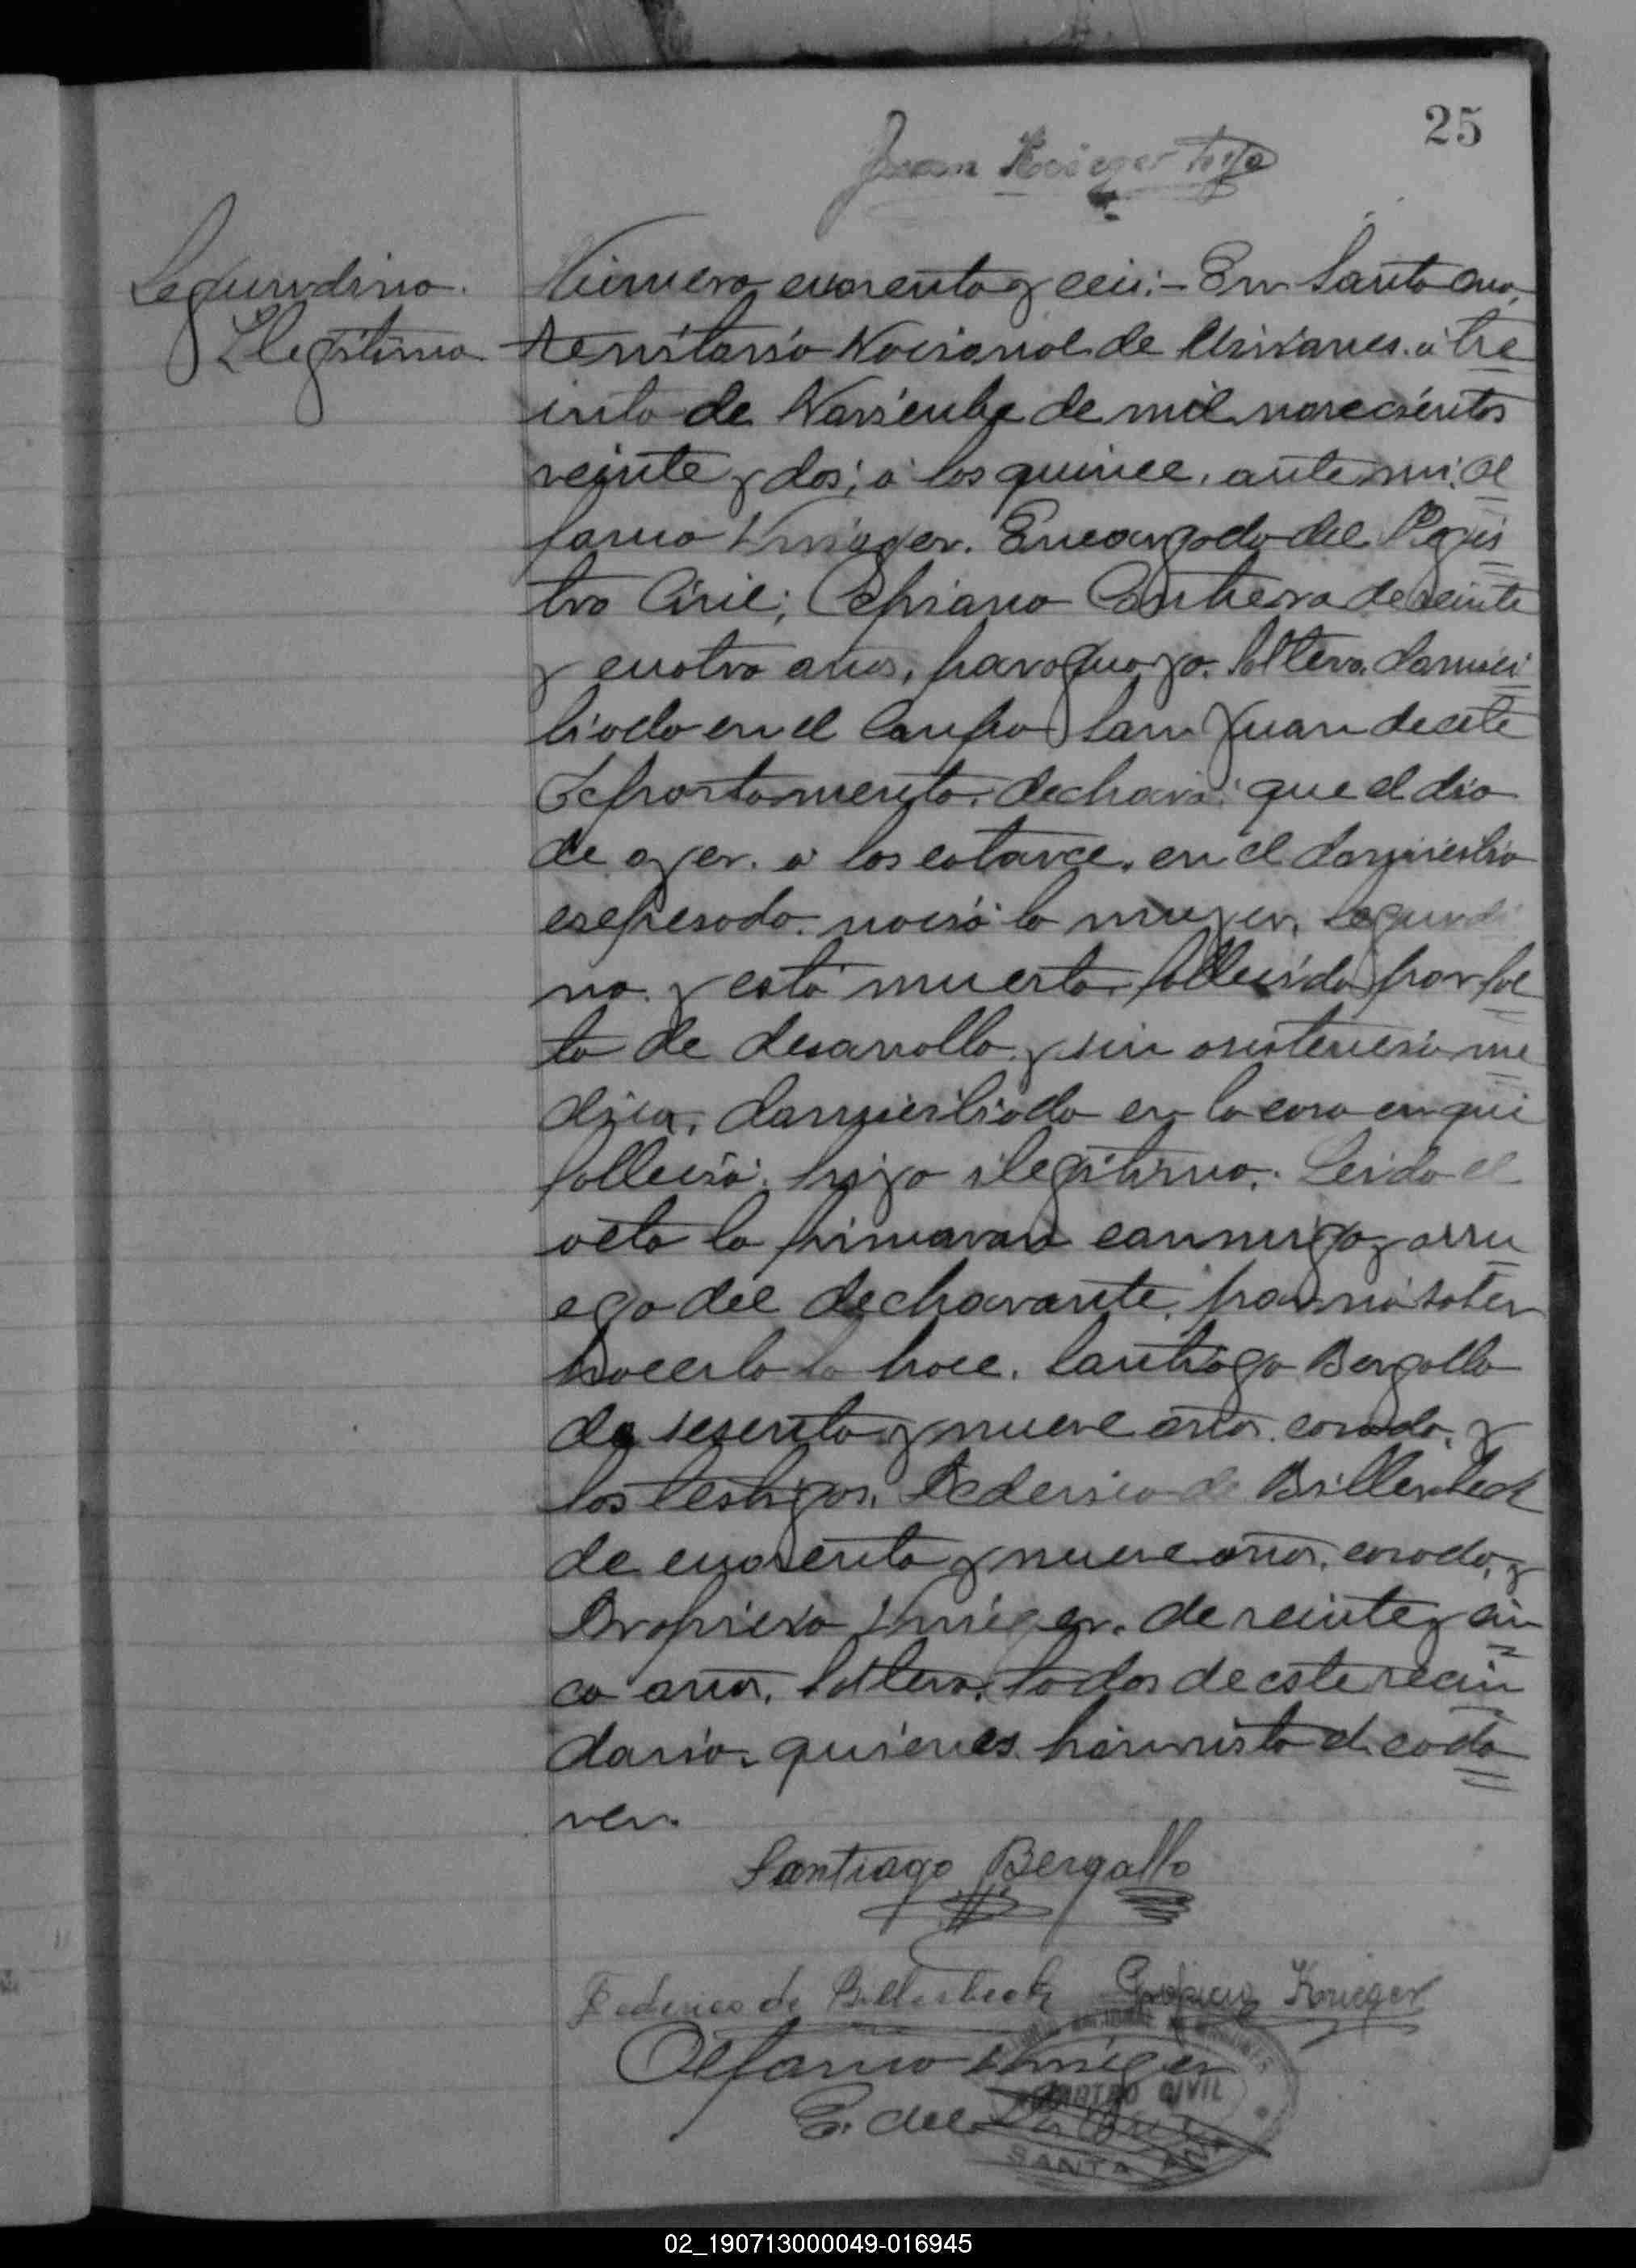 25
Juan Krieger
Segundina
Ilegítima
Número cuarenta y seis:- En Santa Ana,
territorio Nacional de Misiones. á tre
inta de Noviembre de mil novecientos
veinte y dos; á las quince, ante mi, Ol
Krieger. Encargado del Regis
tro Civil; Cipriano de veinte
y cuatro años, paraguayo. soltero. domici
liado en el Campo San Juan de este
Departamento. declara: que el dia
de ayer. á las catorce. en el domicilio
espresado. nació la mujer, Segundi
na. y está muerta fallecida por fal
ta de desarrollo. y sin asistencia me
dica, domiciliada en la casa en que
falleció. hija ilegitima. Leida el
acta la firmaron conmigo, arru
ego del declarante, por no saber
hacerlo lo hace. Santiago Bergallo
de sesenta y nueve años. casado. y
los testigos. Federico de Billerbeck
de cuarenta y nueve años. casado, y
Propicio Krieger. de veinte y cin
co años. soltero. todos de este vecin
dario. quienes han visto el cada
ver.
Santiago Bergallo
Federico de Billerbeck Propicio Krieger
Krieger
E. del R. Civil
REGISTRO CIVIL
SANTA ANA
02_190713000049-016945